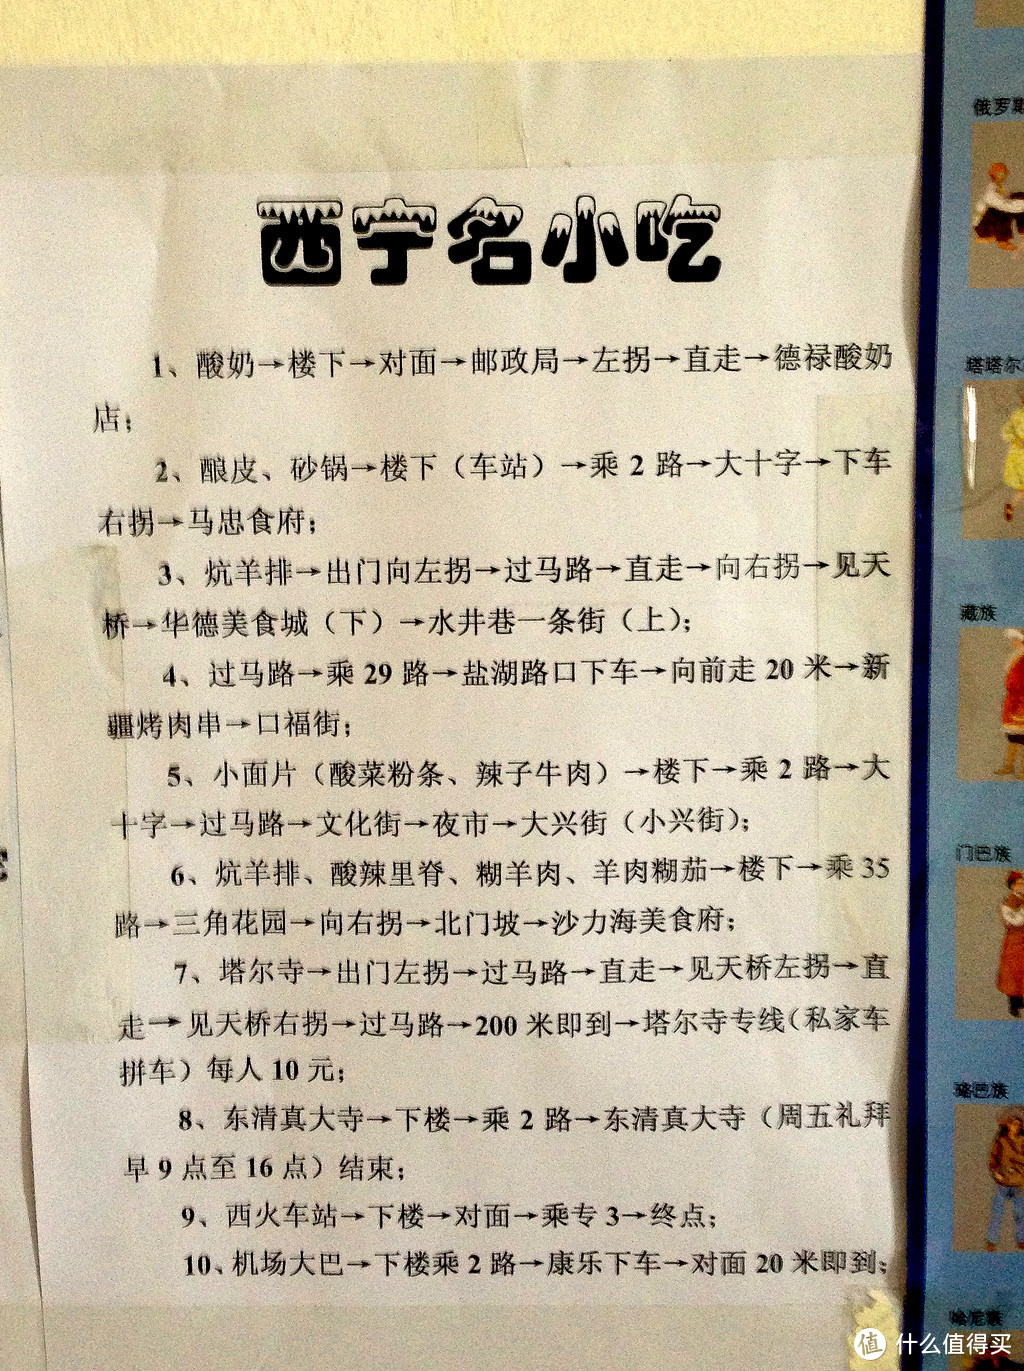 西宁名小吃
1、酸奶→楼下→对面→邮政局→左拐→直走→德禄酸奶
店；
2、酿皮、砂锅→楼下（车站）→乘 2 路→大十字→下车
右拐→马忠食府；
3、炕羊排→出门向左拐→过马路→直走→向右拐→见天
桥→华德美食城（下）→水井巷一条街（上）；
4、过马路→乘 29 路→盐湖路口下车→向前走 20 米→新
疆烤肉串→口福街；
5、小面片（酸菜粉条、辣子牛肉）→楼下→乘 2 路→大
十字→过马路→文化街→夜市→大兴街（小兴街）；
6、炕羊排、酸辣里脊、糊羊肉、羊肉糊茄→楼下→乘 35
路→三角花园→向右拐→北门坡→沙力海美食府；
7、塔尔寺→出门左拐→过马路→直走→见天桥左拐→直
走→见天桥右拐→过马路→200 米即到→塔尔寺专线（私家车
拼车）每人 10 元；
8、东清真大寺→下楼→乘 2 路→东清真大寺（周五礼拜
早 9 点至 16 点）结束；
9、西火车站→下楼→对面→乘专 3→终点；
10、机场大巴→下楼乘 2 路→康乐下车→对面 20 米即到；
俄罗斯
塔塔尔
藏族
门巴族
珞巴族
哈尼族
值 什么值得买